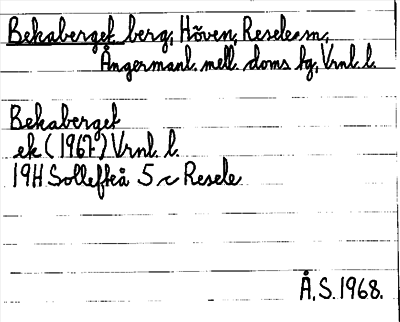 Bekaberget berg, Höven, Resele sn,
Ångermanl. mell. doms hg, Vrnl. l.
Bekaberget
ek (1967) Vrnl. l.
19H Sollefteå 5 c Resele
Å. S. 1968.